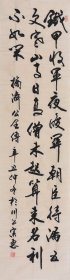 鐵甲將軍夜渡關朝臣待漏五
更寒山寺日高僧未起算來名利
不如閑 摘濟公全傳辛丑仲冬於川